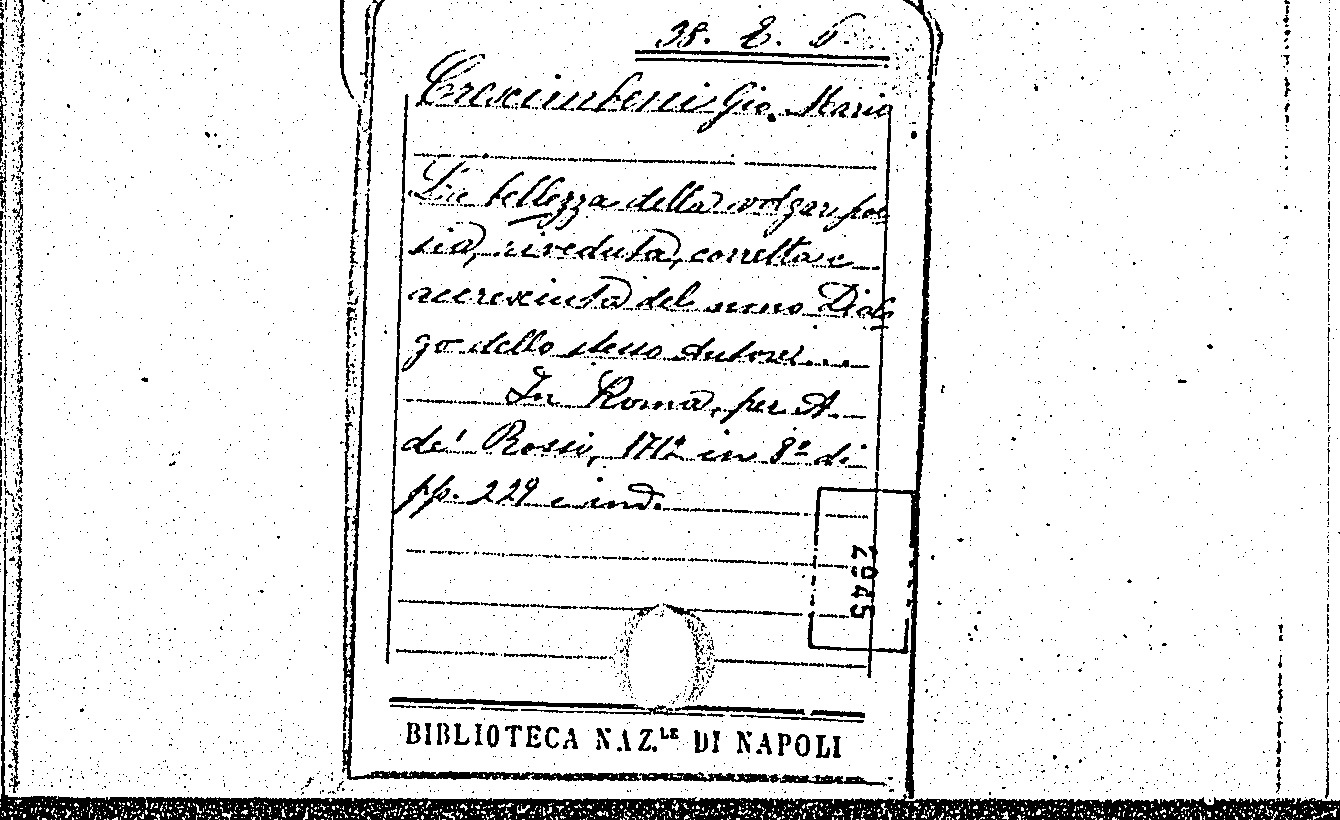 38. E. 6.
Crescimbeni Gio. Mario
La bellezza della volgar poe
sia, riveduta, corretta e
accresciuta del nono Dialo
go dello stesso Autore....
In Roma, per A.
de' Rossi, 1712 in 8º di
pp. 229 e ind.
2945
BIBLIOTECA NAZ.LE DI NAPOLI